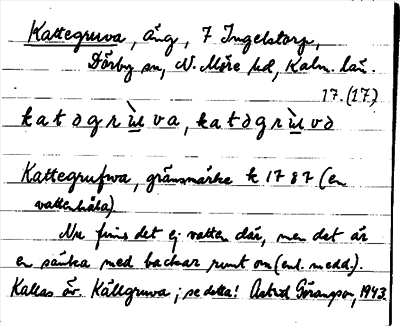 Kattegruva, äng, 7 Ingelstorp,
Dörby sn, N. Möre hd, Kalm. län.
17. (17)
katəgrùva, katəgrùvə
Kattegrufwa, gränsmärke k 1787 (en
vattenhåla).
Nu finns det ej vatten där, men det är
en sänka med backar runt om (enl. medd.).
Kallas äv. Källgruva; se detta! Astrid Göransson, 1943.